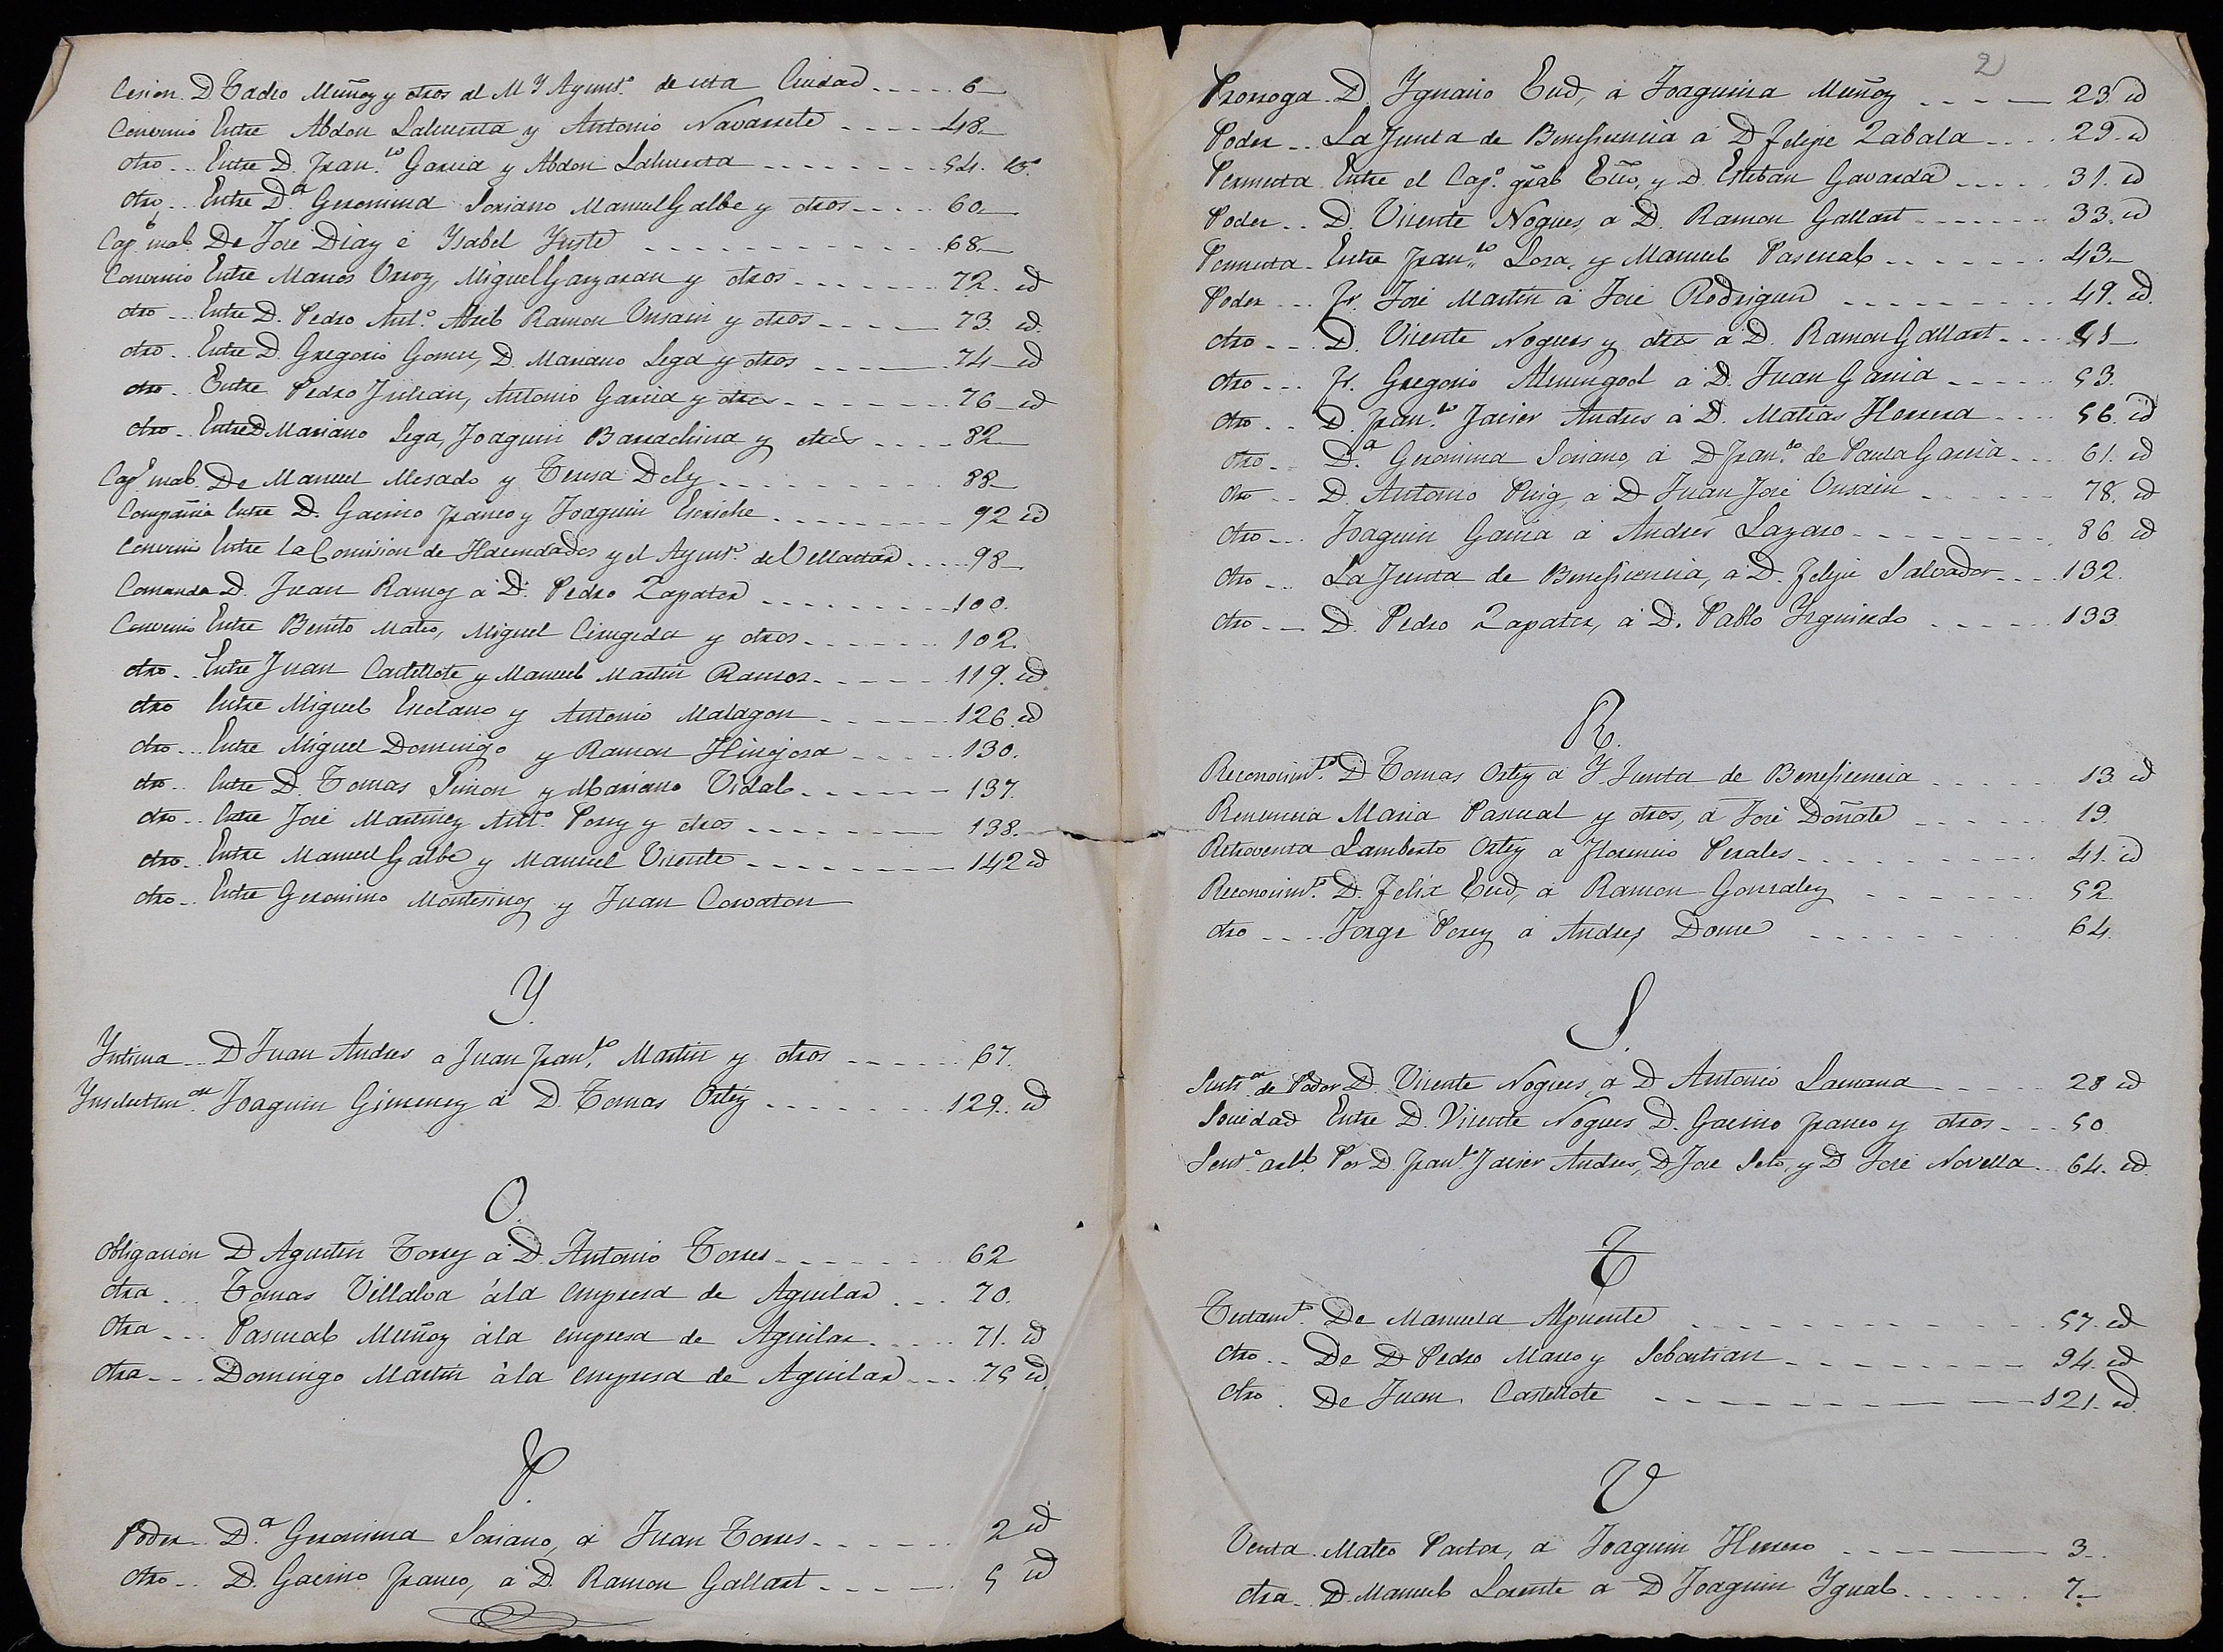 Cesion. D. Tadeo Muñoz y otros al M Y Ayunt.º de esta Ciudad 6
Convenio Entre Abdon Lahuerta y Antonio Navarrete 48.
otro Entre D. Fran.co Garcia y Abdon Lahuerta 54. vº
otro Entre D.ª Geronima Soriano Manuel Galbe y otros 60
Cap.s mal. De José Diaz é Ysabel Yuste 68.
Convenio Entre Marcos Urroz, Miguel Garzaran y otros 72. id
otro Entre D. Pedro Ant.º Abril Ramon Unsain y otros 73. id.
otro Entre D. Gregorio Gomez, D. Mariano Lega y otros 74 id
otro Entre Pedro Julian, Antonio Garcia y otros 76 id
otro Entre D Mariano Lega, Joaquin Barrachina y otros 82
Cap.s mal. De Manuel Mesado y Teresa Dely 88
Compañia Entre D. Gacino Franco y Joaquin Escriche 92 id
Convenio Entre la Comision de Hacendados y el Ayunt.º de Villastar 98
Comanda D. Juan Ramoz á D. Pedro Zapater 100.
Convenio Entre Benito Mateo, Miguel Cirugeda y otros 102.
otro Entre Juan Castellote y Manuel Martin Ramos 119. id
otro Entre Miguel Esclano y Antonio Malagon 126. id
otro Entre Miguel Domingo y Ramon Hinojosa 130.
otro Entre D. Tomas Simon y Mariano Vidal 137.
otro Entre José Martinez Ant.º Perez y otros 138.
otro Entre Manuel Galbe y Manuel Vicente 142 id
otro Entre Geronimo Montesinoz y Juan Corvaton
Y.
Yntima D Juan Andres a Juan Fran.co Martin y otros 67.
Joaquin Gimenez á D. Tomas Ortiz 129. id
O.
Obligacion D Agustin Torrez á D. Antonio Torres 62
otra Tomas Villalva á la empresa de Aguilar 70.
otra Pascual Muñoz á la empresa de Aguilar 71. id
otra Domingo Martin á la empresa de Aguilar 75 id
P.
Poder D.ª Geronima Soriano, á Juan Torres 2 id
otro D. Gacino Franco, á D. Ramon Gallart 5 id
2
Prorroga D. Ygnacio Eud, á Joaquina Muñoz 23. id
Poder La Junta de Beneficencia á D Felipe Zabala 29. id
Permuta Entre el Cap.º gral Ecco, y D. Esteban Gavarda 31. id
Poder D. Vicente Nogues, á D. Ramon Gallart 33. id
Permuta Entre Fran.co Lora, y Manuel Pascual 43
Poder Fr. José Martin á José Rodriguez 49. id.
otro D. Vicente Nogues y otro á D. Ramon Gallart 51
otro Fr. Gregorio Almingod á D. Juan Garcia 53.
otro D. Fran.co Javier Andres á D. Matias Herrera 56. id
otro D.ª Geronima Soriano, á D Fran.co de Paula Garcia 61. id
otro D. Antonio Puig, á D Juan José Unsain 78. id
otro Joaquin Garcia á Andres Lazaro 86 id
otro La Junta de Beneficencia, á D. Felipe Salvador 132.
otro D. Pedro Zapater, á D. Pablo Yzquierdo 133.
R.
Reconocim.to D Tomas Ortiz á Y Junta de Beneficencia 13. id
Renuncia Maria Pascual y otros, á José Doñate 19.
Retroventa Lamberto Ortiz á Florencio Perales 41. id
Reconocim.to D. Felix Eud, á Ramon Gonzalez 52
otro Jorge Perez á Andres Dome 64.
S.
de Poder D. Vicente Nogues, á D Antonio Lamana 28 id
Sociedad Entre D. Vicente Nogues D. Gacino Franco y otros 50
Sent.ª arb.l Por D. Fran.co Javier Andres, D José Soto, y D José Novella 64. id.
T
Testam.to De Manuela Alpuente 57. id
otro De D Pedro Marco y Sebastian 94. id
otro De Juan Castellote 121. id.
V
Venta Mateo Pastor, á Joaquin Herrero 3.
otra D. Manuel Lorente á D Joaquin Ygual 7.